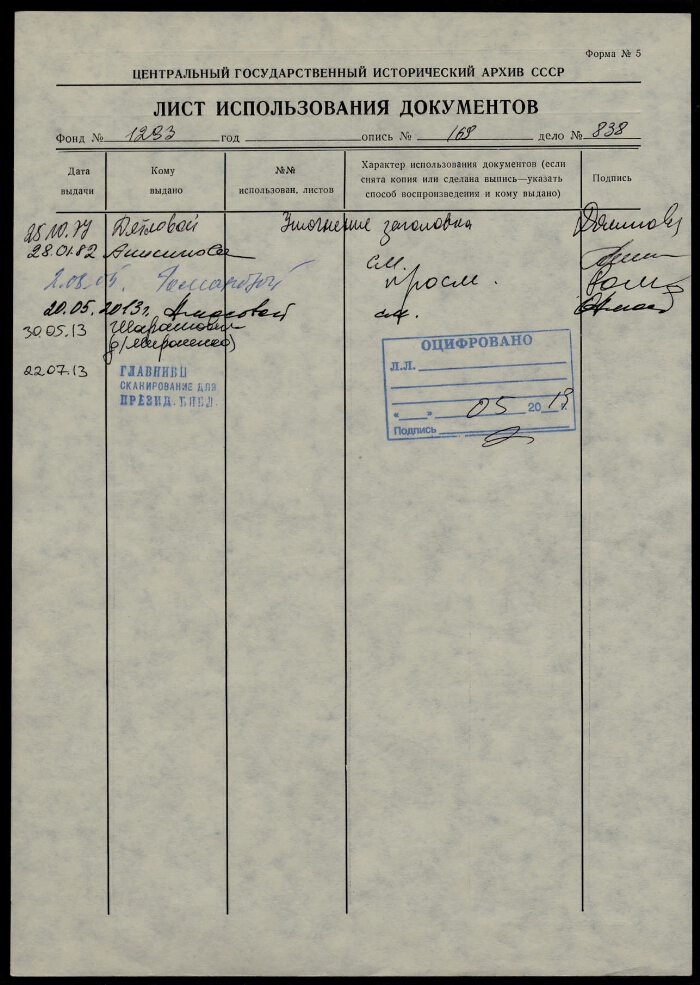 Форма № 5
ЦЕНТРАЛЬНЫЙ ГОСУДАРСТВЕННЫЙ ИСТОРИЧЕСКИЙ АРХИВ СССР
ЛИСТ ИСПОЛЬЗОВАНИЯ ДОКУМЕНТОВ
Фонд № 1293 год опись № 169 дело № 838
Дата выдачи
Кому выдано
№№ использован. листов
Характер использования документов (если
снята копия или сделана выпись—указать
способ воспроизведения и кому выдано)
Подпись
25.10.77 Дятловой Уточнение заголовка
28.01.82 см.
просм.
20.05.2013г. см.
30.05.13
22.07.13
ГЛАВНИВЦ
СКАНИРОВАНИЕ ДЛЯ
ПРЕЗИД. БИБЛ.
ОЦИФРОВАНО
Л.Л.
«__» 05 2013 г.
Подпись